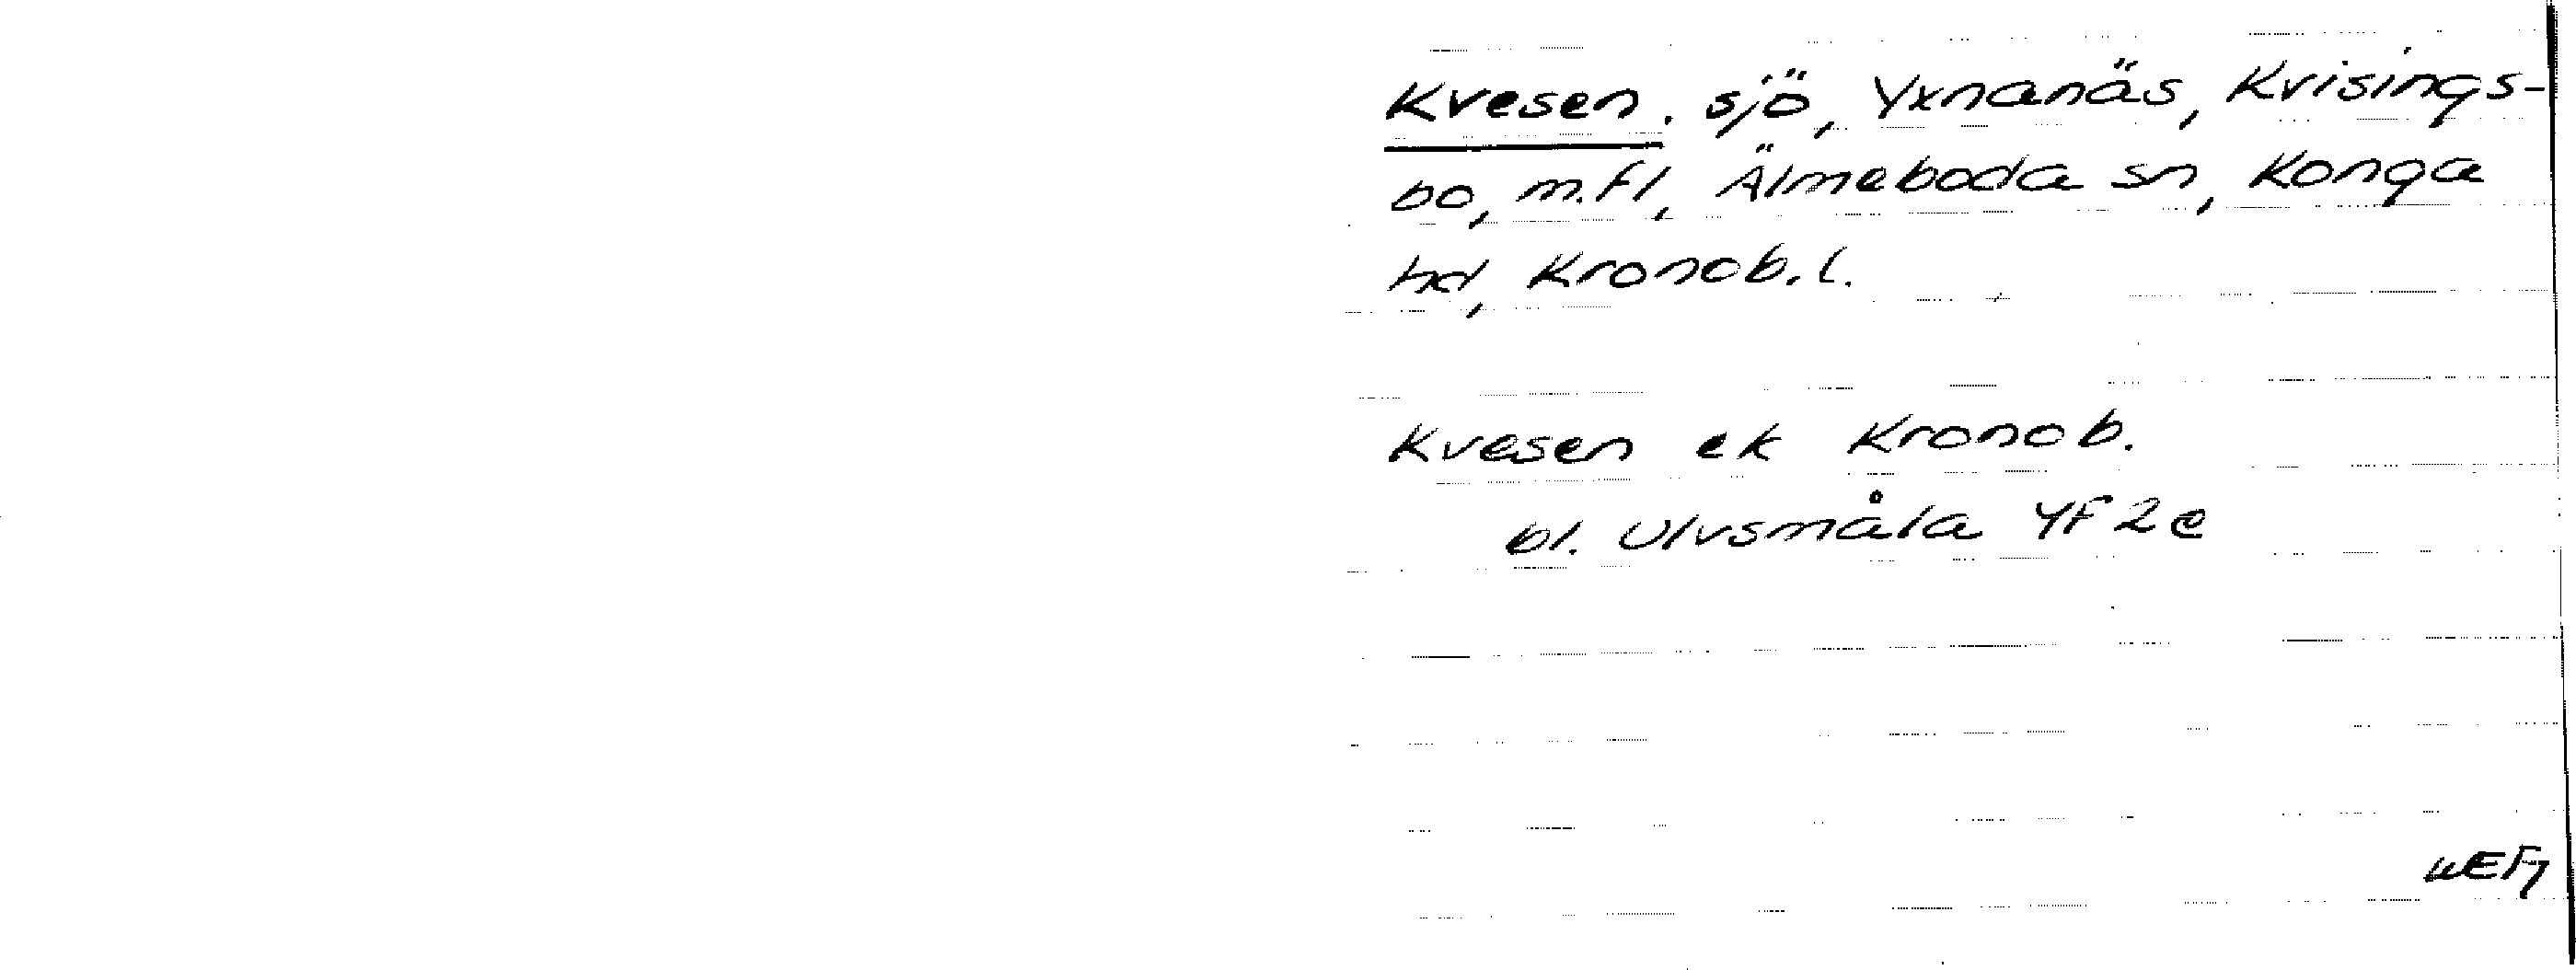 Kvesen. sjö, Yxnanäs, Kvisings-
bo, m.fl, Älmeboda sn, Konga
hd, Kronob.l.
Kvesen ek Kronob.
bl. Ulvsmåla 4F2e